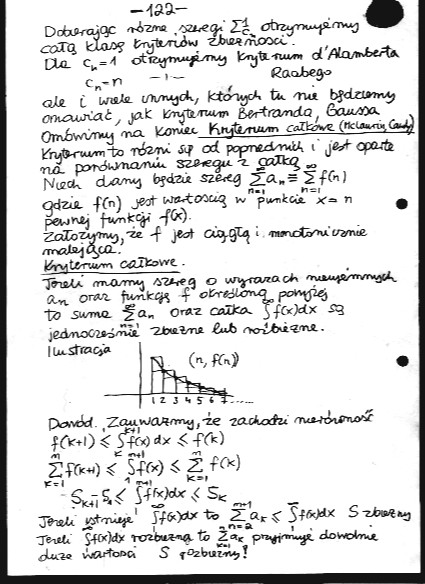 -122-
Dobierając różne szeregi Σ 1/cₙ otrzymujemy
całą klasę kryteriów zbieżności.
Dla cₙ=1 otrzymujemy kryterium d'Alamberta
cₙ=n —"— Raabego
ale i wiele innych, których tu nie będziemy
omawiać, jak kryterium Bertranda, Gaussa
Omówimy na koniec Kryterium całkowe (McLaurin, Cauchy)
Kryterium to różni się od poprzednich i jest oparte
na porównaniu szeregu z całką
Niech dany będzie szereg ∑_{n=1}^{∞} aₙ ≡ ∑_{n=1}^{∞} f(n)
gdzie f(n) jest wartością w punkcie x=n
pewnej funkcji f(x).
Założymy, że f jest ciągłą i monotonicznie
malejąca.
Kryterium całkowe.
Jeżeli mamy szereg o wyrazach nieujemnych
aₙ oraz funkcję f określoną powyżej
to suma ∑_{n=1}^{∞} aₙ oraz całka ∫f(x)dx są
jednocześnie zbieżne lub rozbieżne.
Ilustracja
(n, f(n))
1 2 3 4 5 6 7 .....
Dowód. Zauważmy, że zachodzi nierówność
f(k+1) ≤ ∫_{k}^{k+1} f(x) dx ≤ f(k)
∑_{k=1}^{m} f(k+1) ≤ ∫_{1}^{m+1} f(x) ≤ ∑_{k=1}^{m} f(k)
S_{k+1} - S_1 ≤ ∫^{m+1} f(x)dx ≤ S_k
Jeżeli istnieje ∫^{∞} f(x)dx to ∑_{n=2}^{m+1} a_k ≤ ∫^{∞} f(x)dx S zbieżny
Jeżeli ∫^{∞} f(x)dx rozbieżna to ∑ a_k przyjmuje dowolnie
duże wartości S rozbieżny!